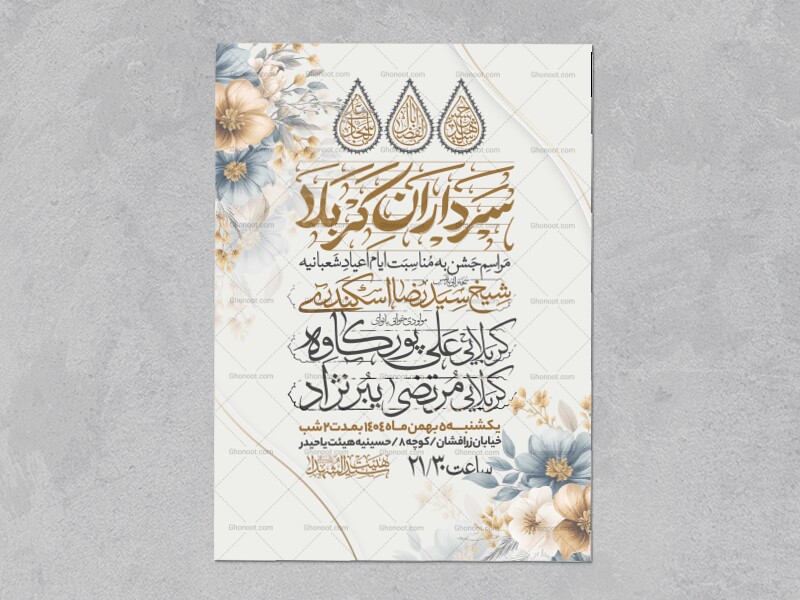 سرداران کربلا
مراسم جشن به مناسبت ایام اعیاد شعبانیه
شیخ سیدرضا اسکندری
مولودی خوانی بانوای
کربلایی علی پورکاوه
کربلایی مرتضی ببرنژاد
یکشنبه ۵ بهمن ماه ۱۴۰۴ بمدت ۲ شب
خیابان زرافشان / کوچه ۸ / حسینیه هیئت یاحیدر
ساعت ۲۱/۳۰
هیئت سیدالشهدا
Ghonoot.com